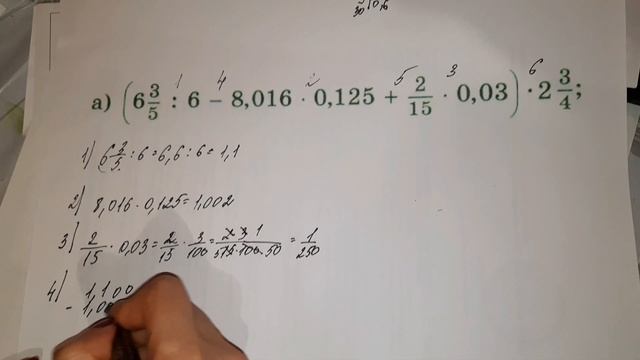 30 10,6
1 4 2 5 3 6
а) (6 3/5 : 6 − 8,016 · 0,125 + 2/15 · 0,03) · 2 3/4;
1) 6 3/5 : 6 = 6,6 : 6 = 1,1
2) 8,016 · 0,125 = 1,002
3) 2/15 · 0,03 = 2/15 · 3/100 = 2 · 3 1 / 5 15 · 100 · 50 = 1/250
4) 1,100
- 1,00